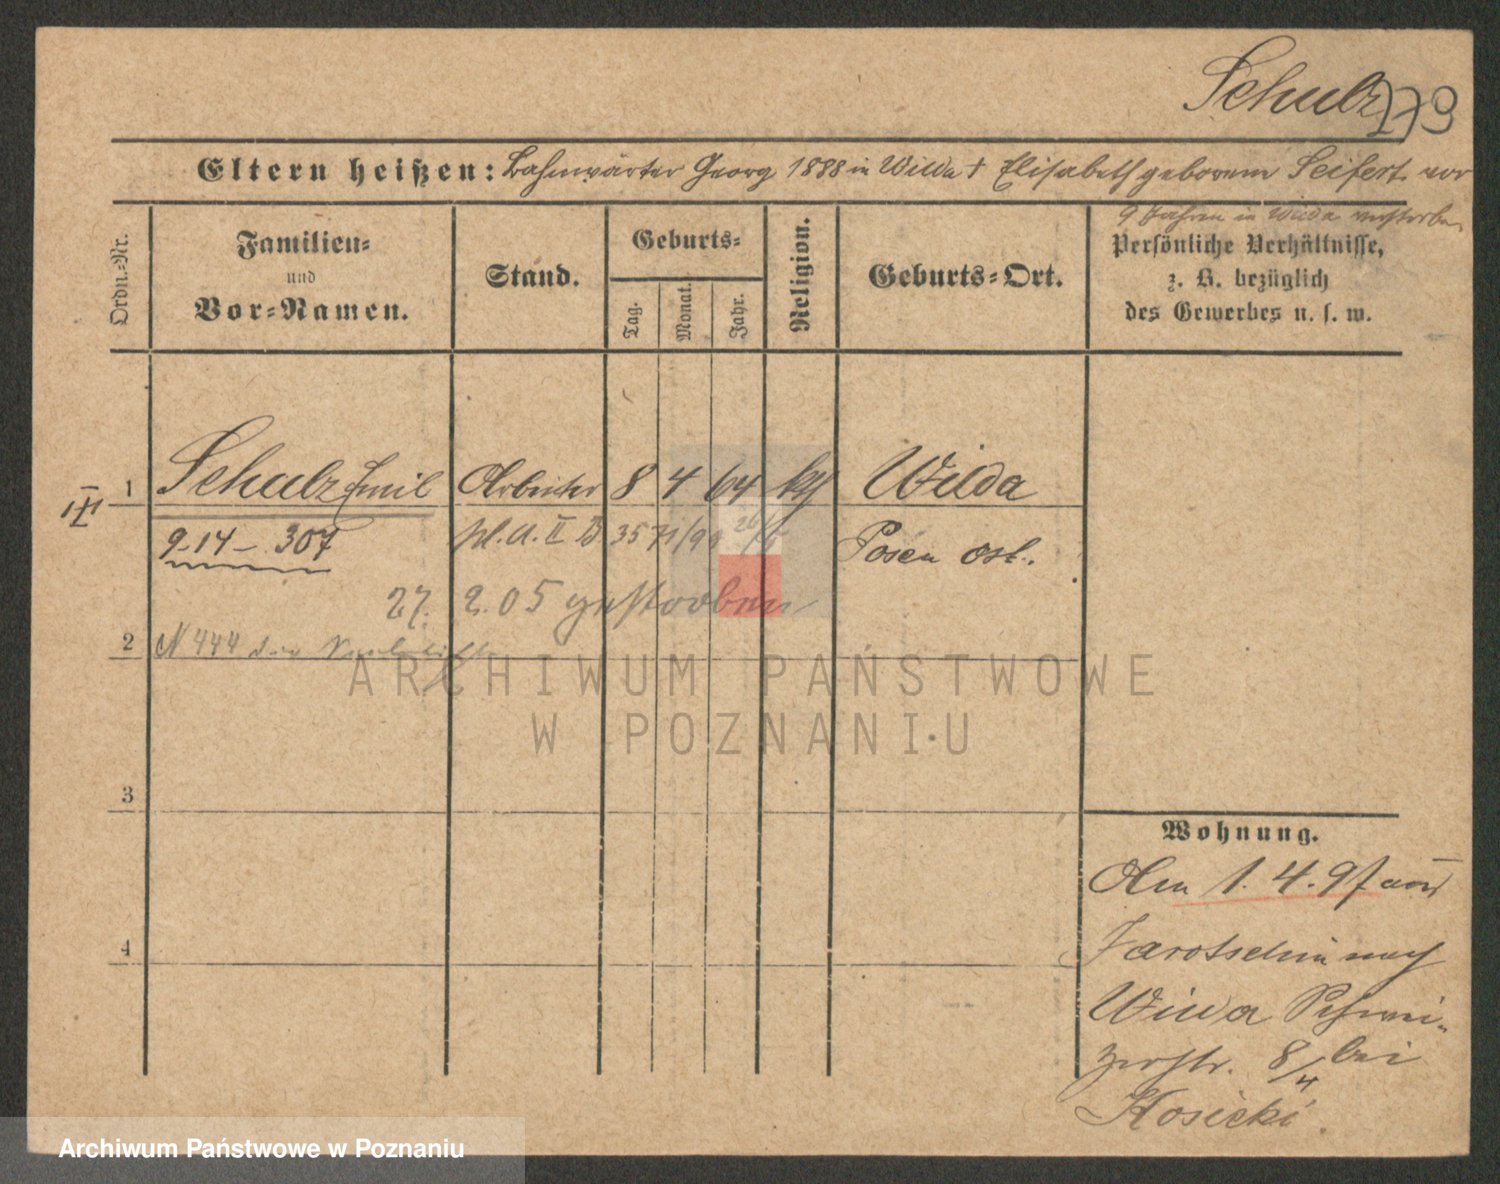 Schulz 179
Eltern heißen: Bahnwärter Georg 1888 in Wilda † Elisabeth geborene Seifert vor
9 Jahren in Wilda verstorben
Ordn.-Nr.
Familien-
und
Vor-Namen.
Stand.
Geburts-
Tag.
Monat.
Jahr.
Religion.
Geburts-Ort.
Persönliche Verhältnisse,
z. B. bezüglich
des Gewerbes u. s. w.
1 Schulz Emil Arbeiter 8 4 64 kth Wilda
9-14- 307
Posen ost.
27. 2. 05 gestorben
2 N 444 der
3
4
Wohnung.
Am 1. 4. 97 von
Jarotschin nach
Wilda Schwei-
zerstr. 8/4 bei
Kosicki.
ARCHIWUM PAŃSTWOWE
W POZNANIU
Archiwum Państwowe w Poznaniu